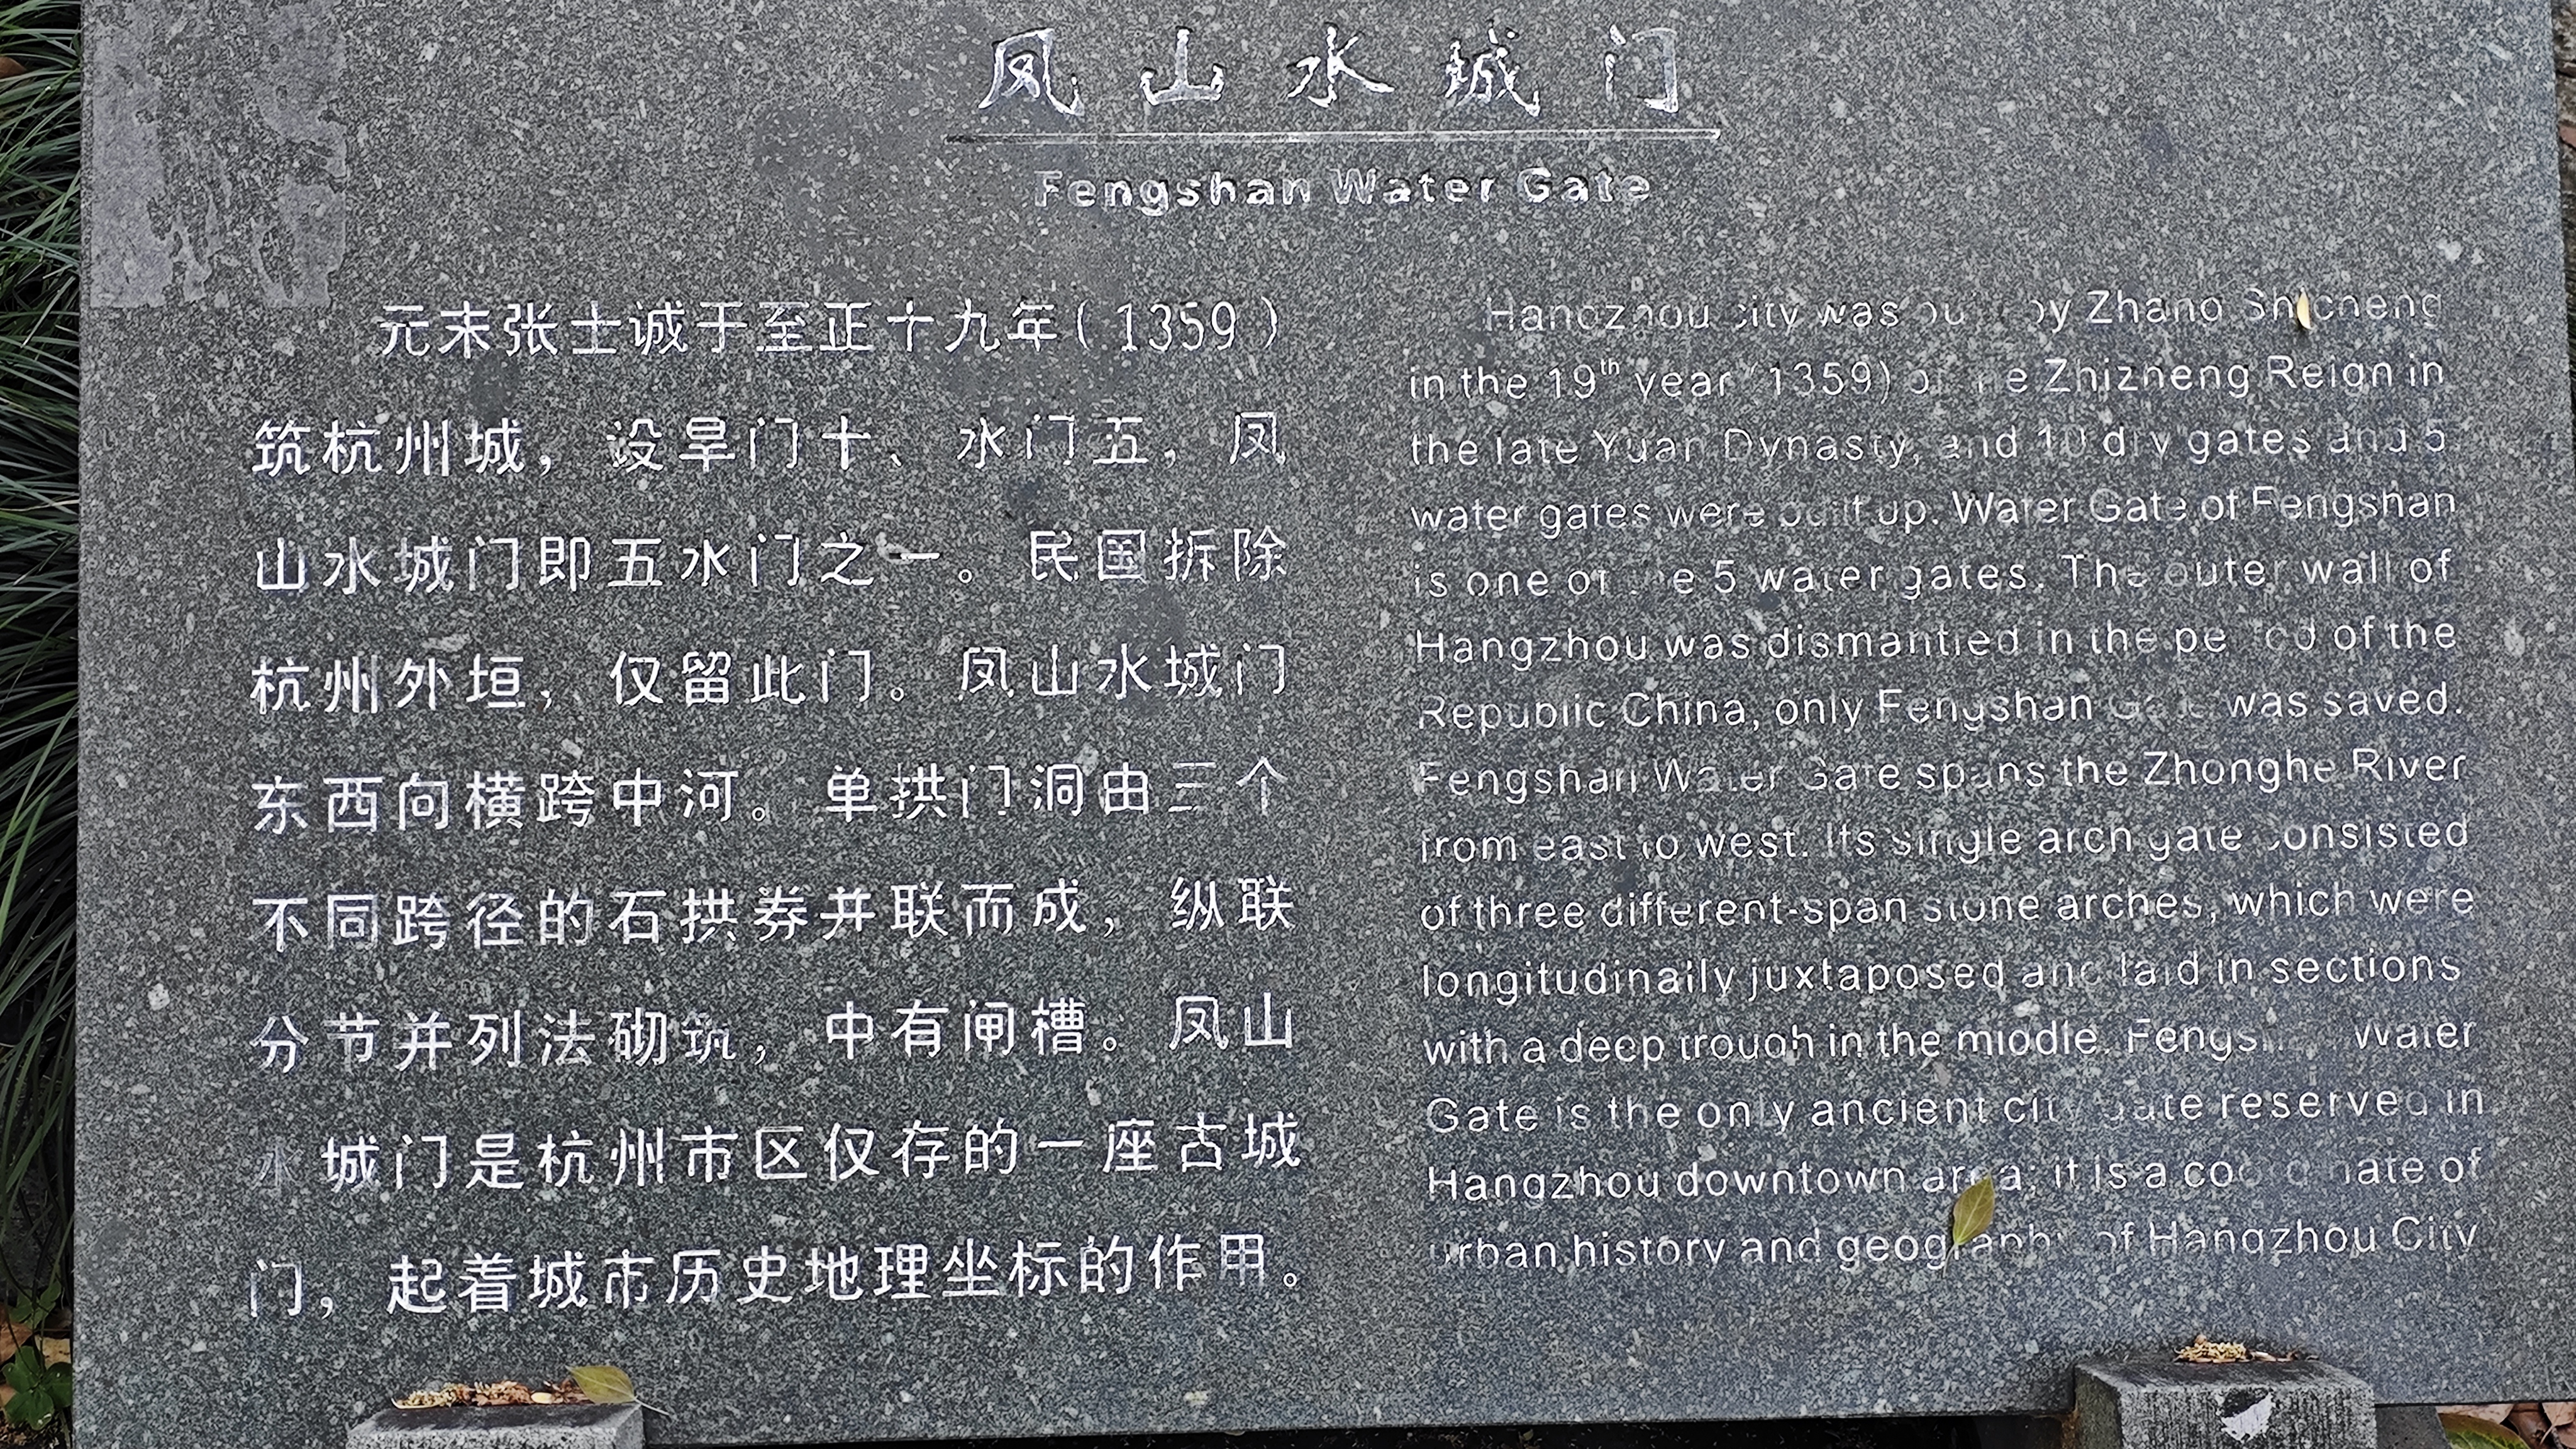 凤山水城门
Fengshan Water Gate
元末张士诚于至正十九年(1359)
筑杭州城，设旱门十、水门五，凤
山水城门即五水门之一。民国拆除
杭州外垣，仅留此门。凤山水城门
东西向横跨中河。单拱门洞由三个
不同跨径的石拱券并联而成，纵联
分节并列法砌筑，中有闸槽。凤山
水城门是杭州市区仅存的一座古城
门，起着城市历史地理坐标的作用。
Hangzhou city was built by Zhang Shicheng
in the 19th year (1359) of the Zhizheng Reign in
the late Yuan Dynasty, and 10 dry gates and 5
water gates were built up. Water Gate of Fengshan
is one of the 5 water gates. The outer wall of
Hangzhou was dismantled in the period of the
Republic China, only Fengshan Gate was saved.
Fengshan Water Gate spans the Zhonghe River
from east to west. Its single arch gate consisted
of three different-span stone arches, which were
longitudinally juxtaposed and laid in sections
with a deep trough in the middle. Fengshan Water
Gate is the only ancient city gate reserved in
Hangzhou downtown area; it is a coordinate of
urban history and geography of Hangzhou City